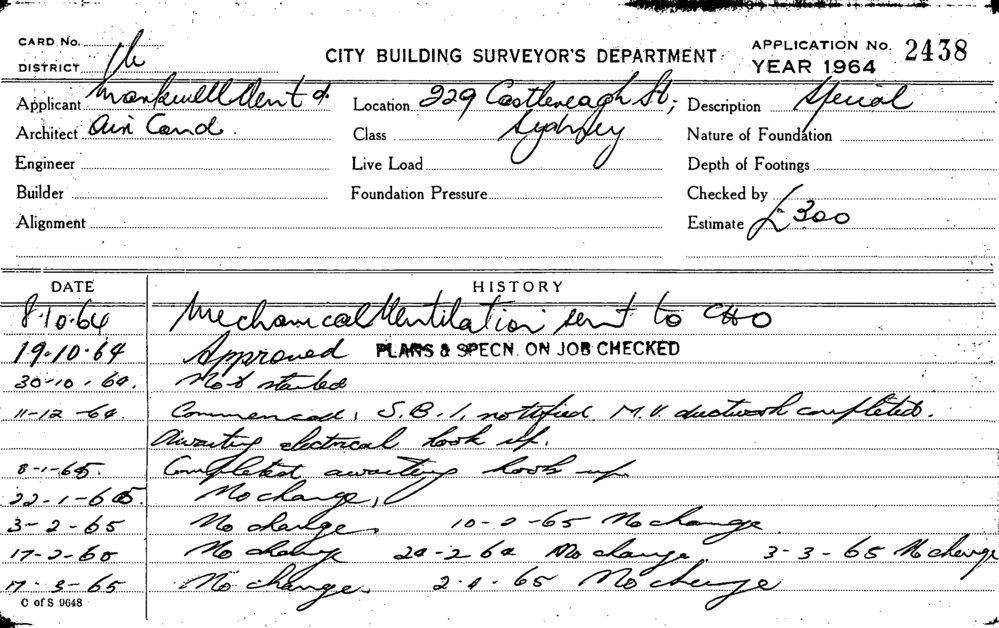 CARD No.
DISTRICT
CITY BUILDING SURVEYOR'S DEPARTMENT
APPLICATION No. 2438
YEAR 1964
Applicant Markwell Vent &
Location 229 Castlereagh St;
Description Special
Architect Air Cond.
Class Sydney
Nature of Foundation
Engineer
Live Load
Depth of Footings
Builder
Foundation Pressure
Checked by
Alignment
Estimate £300
DATE HISTORY
8.10.64 Mechanical Ventilation sent to CHO
19.10.64 Approved PLANS & SPECN. ON JOB CHECKED
30-10-64. Not started
11-12-64. Commenced, S.B.I. notified M.V. ductwork completed.
Awaiting electrical hook up.
8-1-65. Completed awaiting hook up
22-1-65. No change,
3-2-65 No change. 10-2-65 No change
17-2-65 No change 24-2-64 No change 3-3-65 No change
17-3-65 No change. 2-4-65 No change
C of S 9648